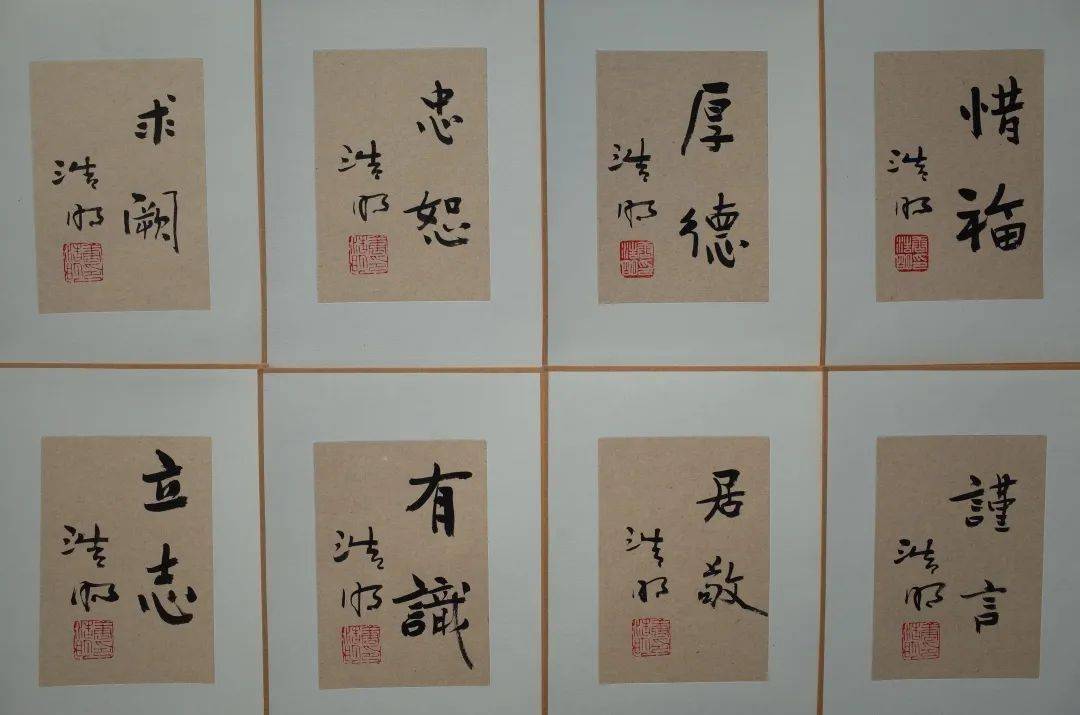 求闕
浩明
忠恕
浩明
厚德
浩明
惜福
浩明
立志
浩明
有識
浩明
居敬
浩明
謹言
浩明